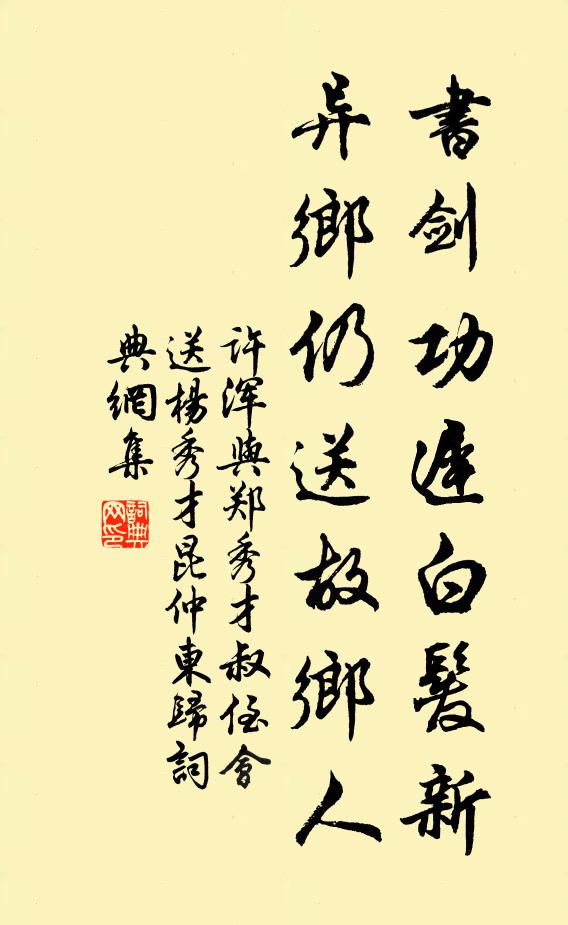 書剑功遲白髮新
异鄉仍送故鄉人
许渾與郑秀才叔侄會
送楊秀才昆仲東歸詞
典網集
詞典
网印